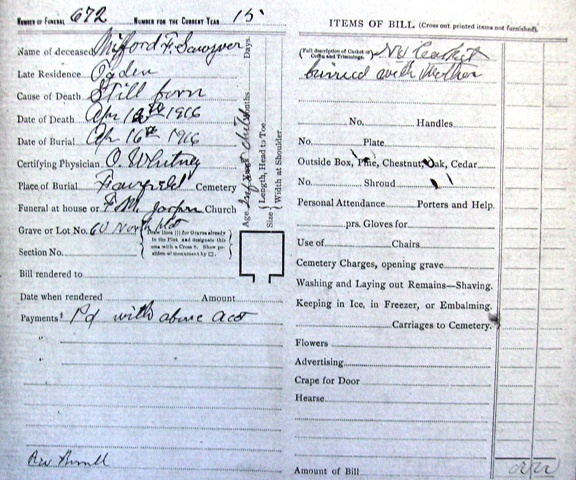 NUMBER OF FUNERAL 672 NUMBER FOR THE CURRENT YEAR 15
Name of deceased Mifford F. Sawyer
Late Residence Ogden
Cause of Death Still born
Date of Death Apr 1916
Date of Burial Apr 16th 1916
Certifying Physician O. Whitney
Place of Burial Fairfield Cemetery
Funeral at house or Church
Grave or Lot No. 60 North
Draw lines for Graves already in the Plot and designate this one with a Cross X. Show position of monument by □.
Section No.
Bill rendered to
Date when rendered Amount
Payments Pd with above acct
"
"
Days.
Months
Age
Size { Length, Head to Toe
Width at Shoulder
ITEMS OF BILL (Cross out printed items not furnished).
(Full description of Casket or Coffin and Trimmings. No Casket
burried with Mother
No. Handles.
No. Plate
Outside Box, Pine, Chestnut, Oak, Cedar
No. Shroud
Personal Attendance Porters and Help.
prs. Gloves for
Use of Chairs
Cemetery Charges, opening grave
Washing and Laying out Remains—Shaving.
Keeping in Ice, in Freezer, or Embalming.
Carriages to Cemetery.
Flowers
Advertising
Crape for Door
Hearse
Amount of Bill